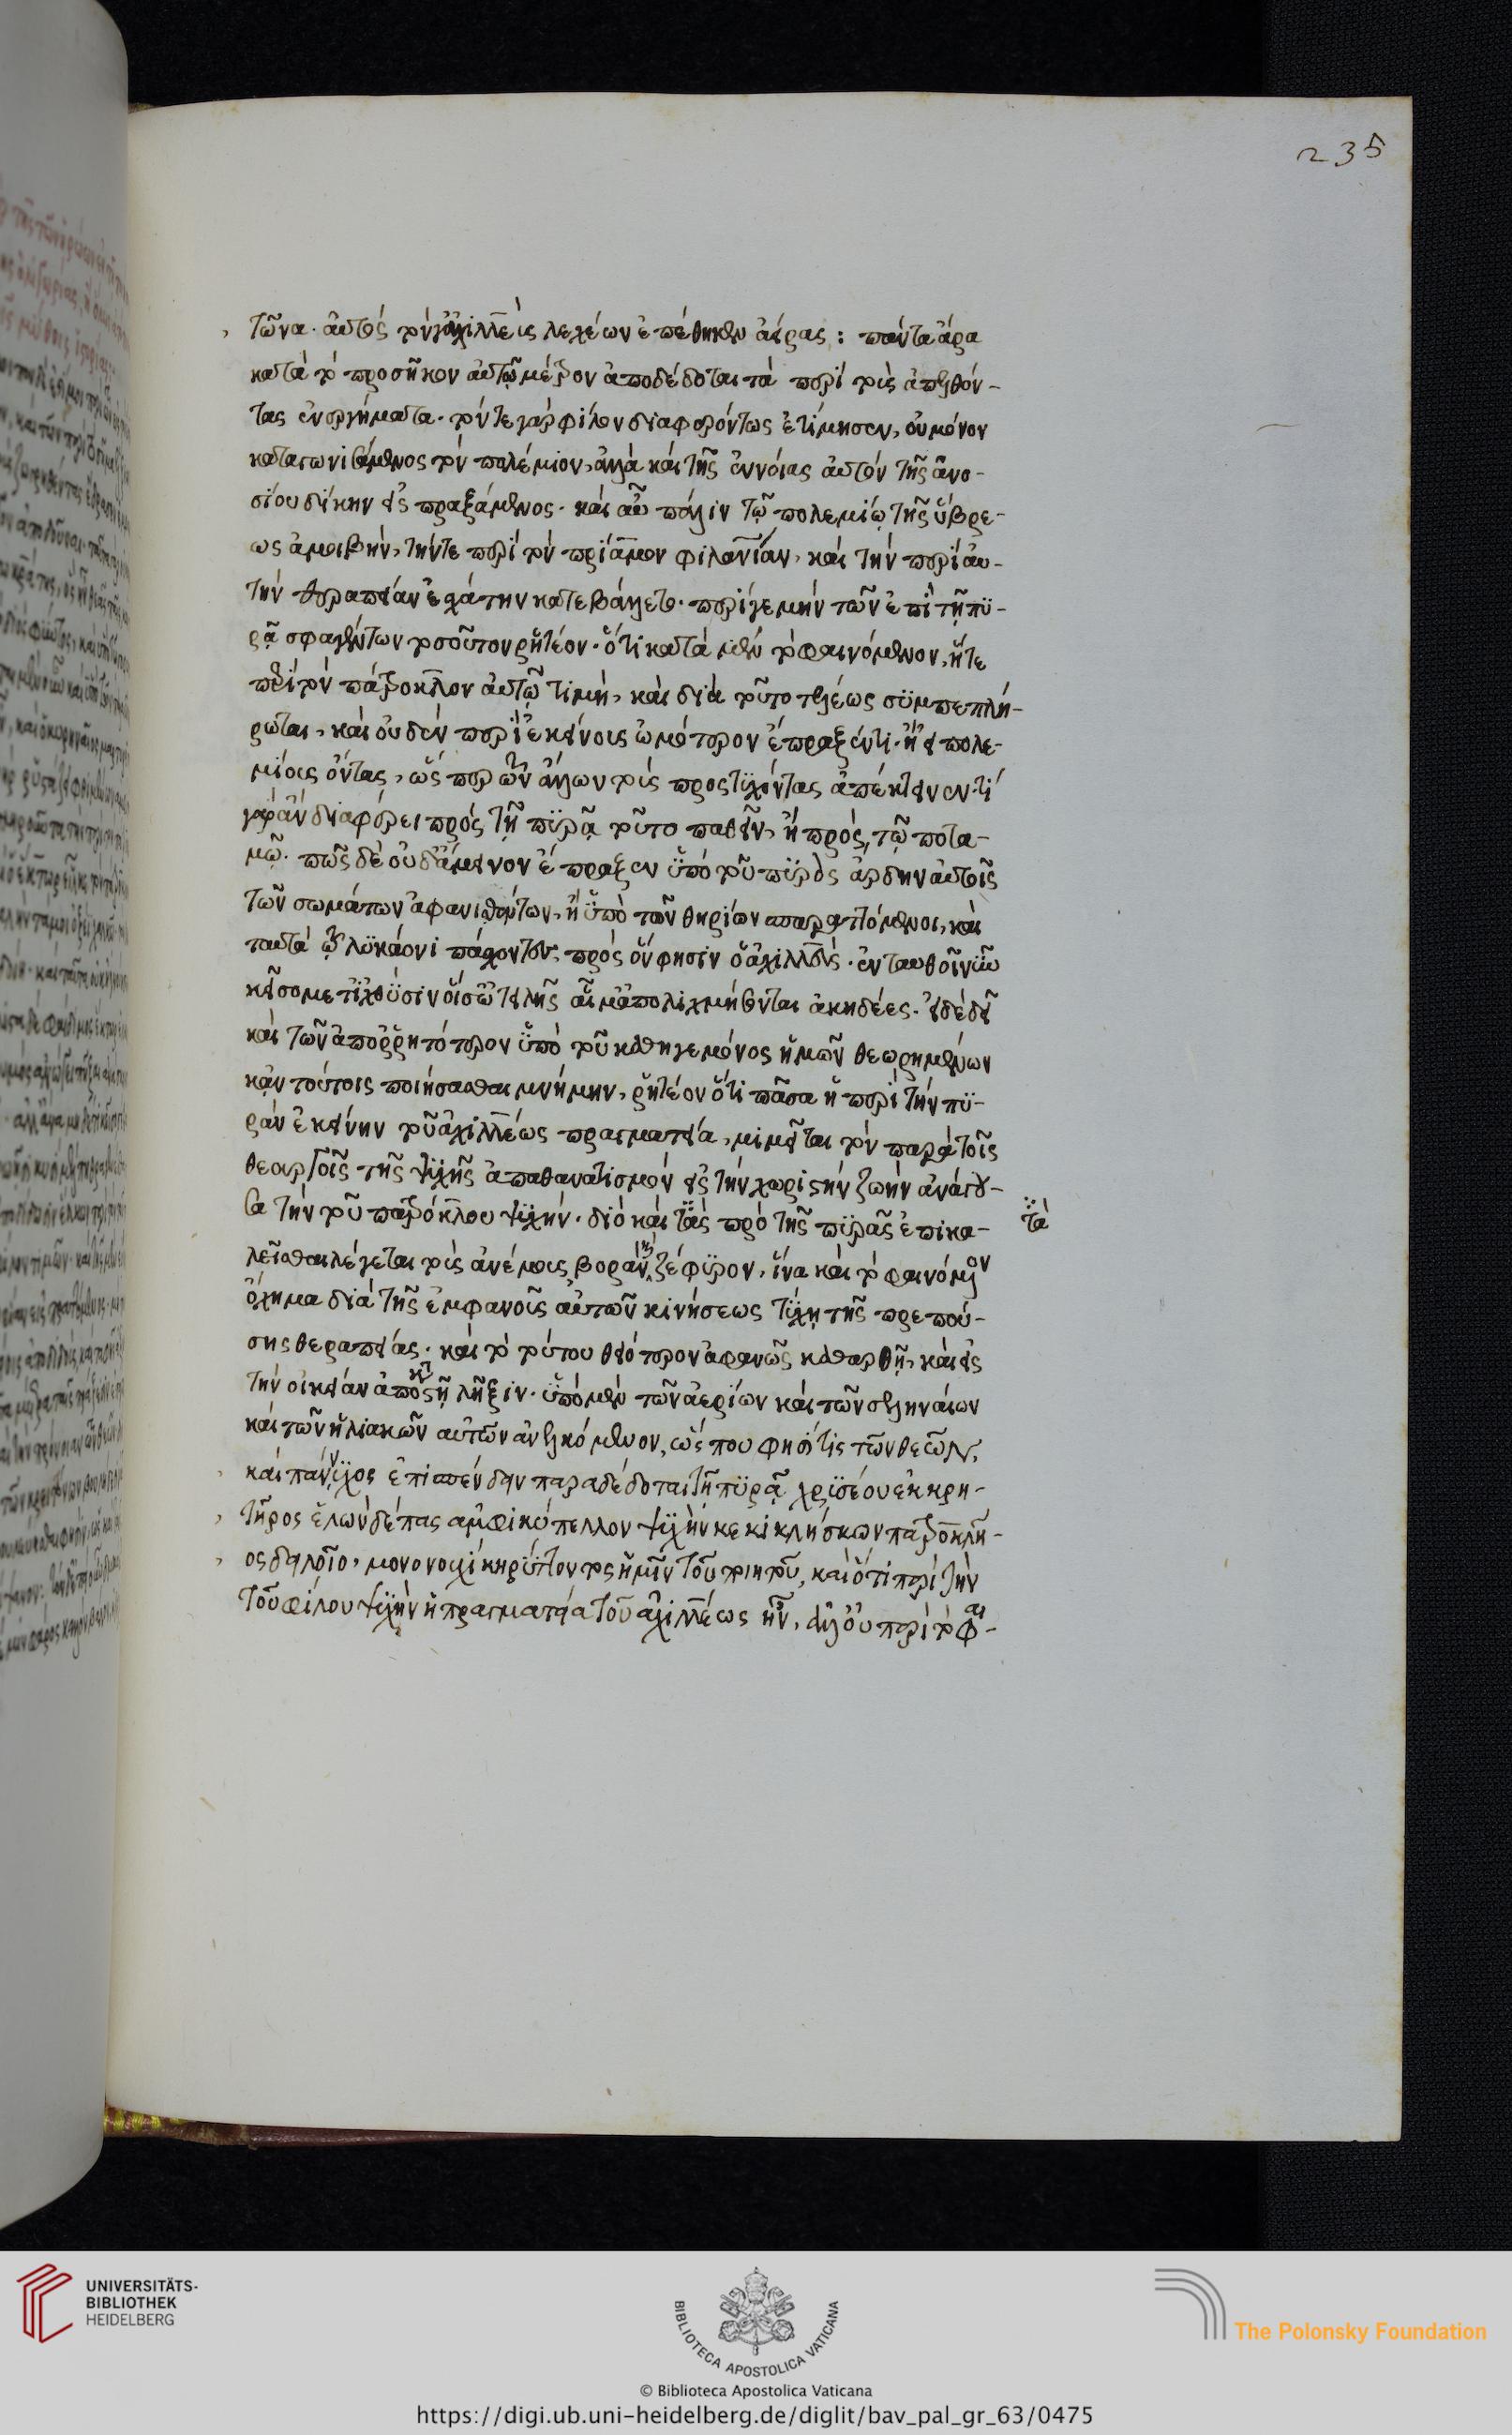 235
τῶνα. αὐτὸς τόν γ᾽ ἀχιλλεὺς λεχέων ἐπέθηκεν ἀείρας : πάντα ἄρα
κατὰ τὸ προσῆκον αὐτῷ μέτρον ἀποδέδοται τὰ περὶ τοὺς ἀπελθόν-
τας ἐνεργήματα. τόν τε γὰρ φίλον διαφερόντως ἐτίμησεν, οὐ μόνον
καταγωνισάμενος τὸν πολέμιον, ἀλλὰ καὶ τῆς ἐννοίας αὐτὸν τῆς ἀνο-
σίου δίκην εἰσπραξάμενος. καὶ αὖ πάλιν τῷ πολεμίῳ τῆς ὕβρε-
ως ἀμοιβὴν, τήν τε περὶ τὸν πρίαμον φιλανίαν, καὶ τὴν περὶ αὐ-
τὴν θεραπείαν ἐχάτην κατεβάλετο. περί γε μὴν τῶν ἐπὶ τῇ πυ-
ρᾷ σφαγέντων τοσοῦτον ῥητέον. ὅτι κατὰ μὲν τὸ φαινόμενον, ἥ τε
περὶ τὸν πάτροκλον αὐτῷ τιμὴ, καὶ διὰ τοῦτο τελέως συμπεπλή-
ρωται, καὶ οὐδὲν περὶ ἐκείνοις ὠμότερον ἐπραξέντι. ἢ εἰ πολε-
μίοις ὄντας, ὥσπερ τῶν ἄλλων τοὺς προστυχόντας ἀπέκτεινεν. τί
γὰρ ἂν διαφέρει πρὸς τῇ πυρᾷ τοῦτο παθεῖν, ἢ πρὸς, τῷ ποτα-
μῷ. πῶς δὲ οὐδ᾽ ἄμεινον ἔπραξεν ὑπὸ τοῦ πυρὸς ἄρδην αὐτοῖς
τῶν σωμάτων ἀφανισθέντων, ἢ ὑπὸ τῶν θηρίων σπαραττόμενοι, καὶ
ταυτὰ τῷ λυκάονι πάσχοντες πρὸς ὅν φησὶν ὁ ἀχιλλεύς. ἐνταυθοῖ νῦν
κεῖσο μετ᾽ ἰχθύσιν οἵ σ᾽ ὠτειλῆς αἷμ᾽ ἀπολιχμήσονται ἀκηδέες. εἰ δὲ δεῖ
καὶ τῶν ἀπορρητότερον ὑπὸ τοῦ καθηγεμόνος ἡμῶν θεωρημένων
κἀν τούτοις ποιήσασθαι μνήμην, ῥητέον ὅτι πᾶσα ἡ περὶ τὴν πυ-
ρὰν ἐκείνην τοῦ ἀχιλλέως πραγματεία, μιμεῖται τὸν παρὰ τοῖς
θεουργοῖς τῆς ψυχῆς ἀπαθανατισμὸν εἰς τὴν χωριστὴν ζωὴν ἀνάγου-
σα τὴν τοῦ πατρόκλου ψυχήν. διὸ καὶ τὰς πρὸ τῆς πυρᾶς ἐπικα-
τὰ
λεῖσθαι λέγεται τοὺς ἀνέμους βορρᾶν καὶ ζέφυρον, ἵνα καὶ τὸ φαινόμενον
ὄχημα διὰ τῆς ἐμφανοῦς αὐτῶν κινήσεως τύχῃ τῆς πρεπού-
σης θεραπείας. καὶ τὸ τούτου θειότερον ἀφανῶς καθαρθῇ, καὶ εἰς
τὴν οἰκείαν ἀποκαταστῇ λῆξιν. ὑπὸ μὲν τῶν ἀερίων καὶ τῶν σεληναίων
καὶ τῶν ἡλιακῶν αὐτῶν ἀνελκόμενον, ὥς που φησί τις τῶν θεῶν,
καὶ πάννυχος ἐπισπένδειν παραδέδοται τῇ πυρᾷ χρυσέου ἐκ κρη-
τῆρος ἑλὼν δέπας ἀμφικύπελλον ψυχὴν κεκικλήσκων πατροκλῆ-
ος δειλοῖο, μονονουχὶ κηρύττοντος ἡμῖν τοῦ ποιητοῦ, καὶ ὅτι περὶ τὴν
τοῦ φίλου ψυχὴν ἡ πραγματεία τοῦ ἀχιλλέως ἦν, ἀλλ᾽ οὐ περὶ τὸ φαι-
UNIVERSITÄTS-
BIBLIOTHEK
HEIDELBERG
BIBLIOTECA APOSTOLICA VATICANA
The Polonsky Foundation
© Biblioteca Apostolica Vaticana
https://digi.ub.uni-heidelberg.de/diglit/bav_pal_gr_63/0475